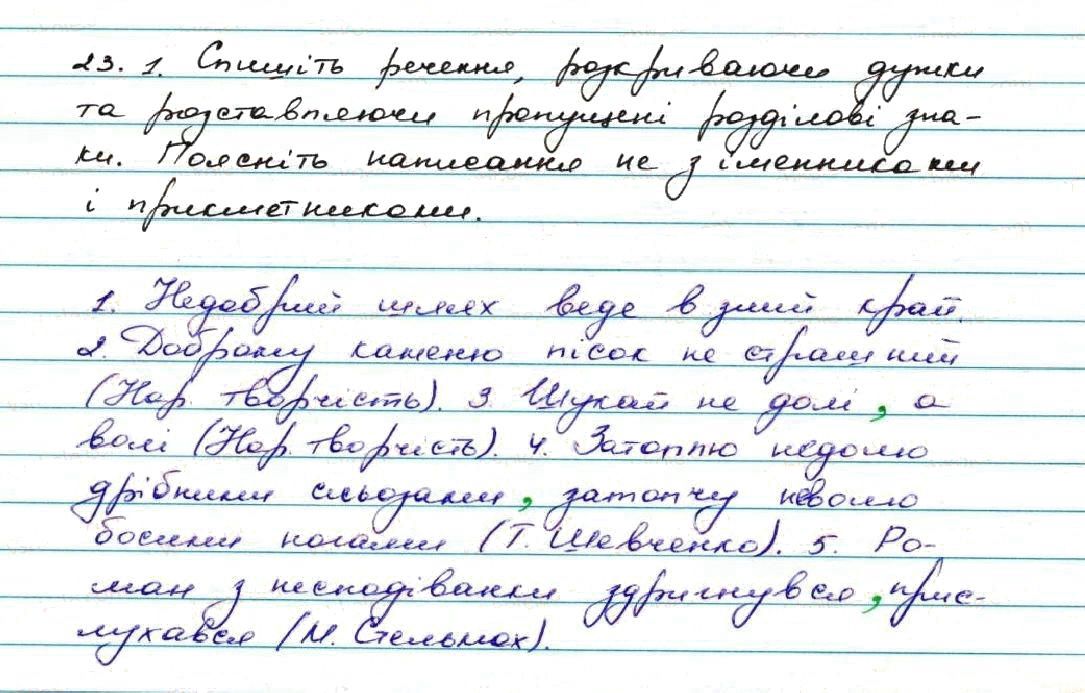 23. 1. Спишіть речення, розкриваючи дужки
та розставляючи пропущені розділові зна-
ки. Поясніть написання не з іменниками
і прикметниками.
1. Недобрий шлях веде в злий край.
2. Доброму каменю пісок не страшний
(Нар. творчість). 3. Шукай не долі, а
волі (Нар. творчість). 4. Затоплю недолю
дрібними сльозами, затопчу неволю
босими ногами (Т. Шевченко). 5. Ро-
ман з несподіванки здригнувся, прис-
лухався (М. Стельмах).